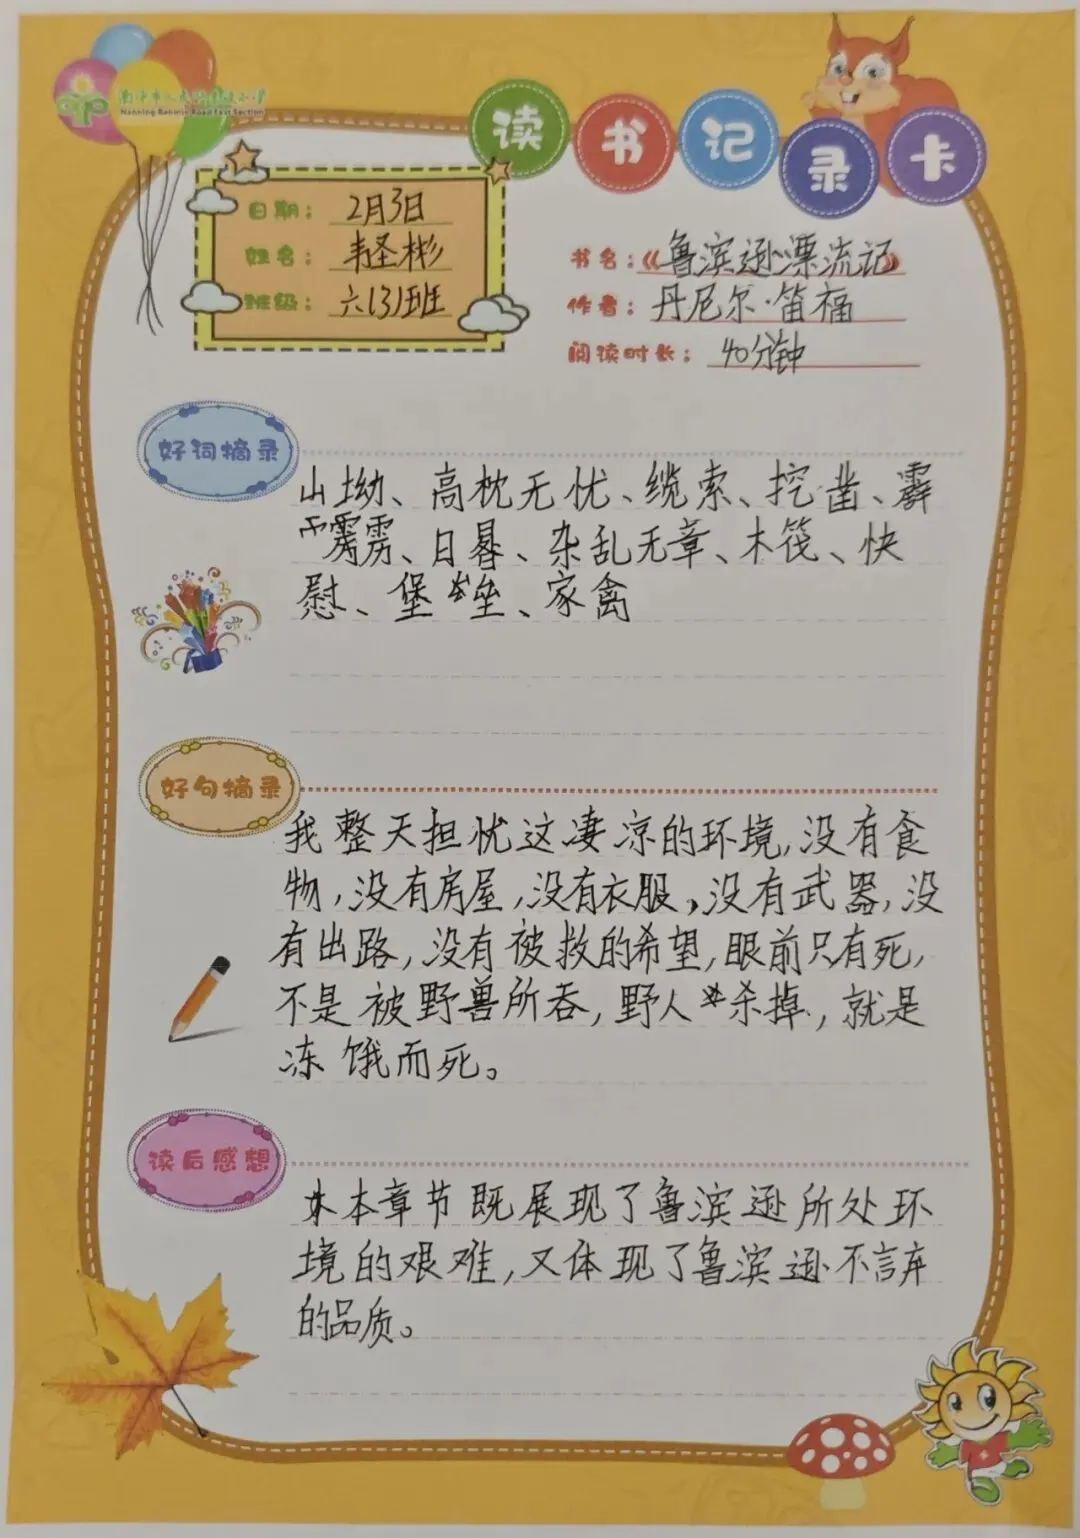 Nanning Renmin Road East Section
读书记录卡
日期：2月3日
姓名：韦圣彬
班级：六(3)班
书名：《鲁滨逊漂流记》
作者：丹尼尔·笛福
阅读时长：40分钟
好词摘录
山坳、高枕无忧、缆索、挖凿、霹
雳、日晷、杂乱无章、木筏、快
慰、堡垒、家禽
好句摘录
我整天担忧这凄凉的环境,没有食
物,没有房屋,没有衣服,没有武器,没
有出路,没有被救的希望,眼前只有死,
不是被野兽所吞,野人杀掉,就是
冻饿而死。
读后感想
本章节既展现了鲁滨逊所处环
境的艰难,又体现了鲁滨逊不言弃
的品质。